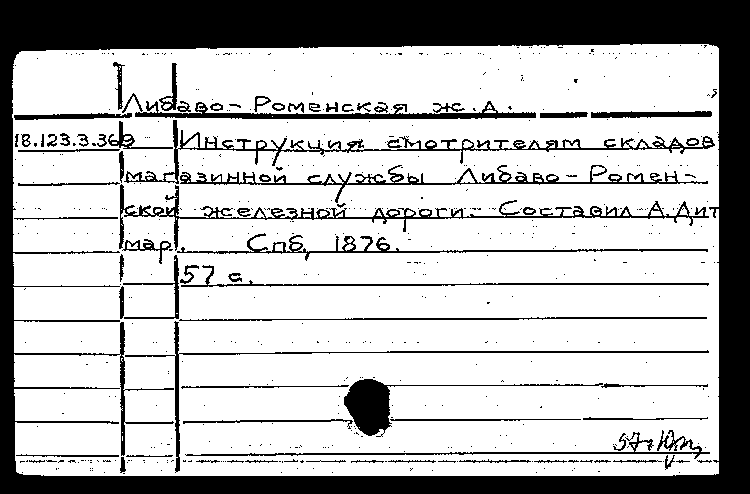 Либаво-Роменская ж.д.
18.123.3.369 Инструкция смотрителям складов
магазинной службы Либаво-Ромен-
ской железной дороги.- Составил А.Дит
мар. Спб, 1876.
57 с.